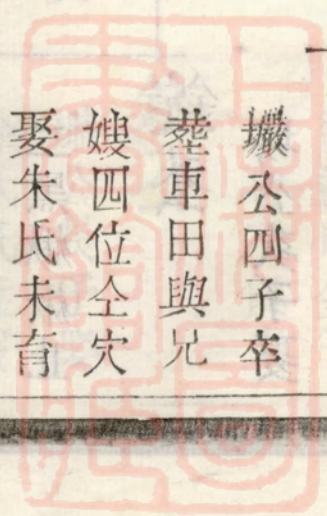 公四子卒
葬車田與兄
嫂四位仝穴
娶朱氏未育